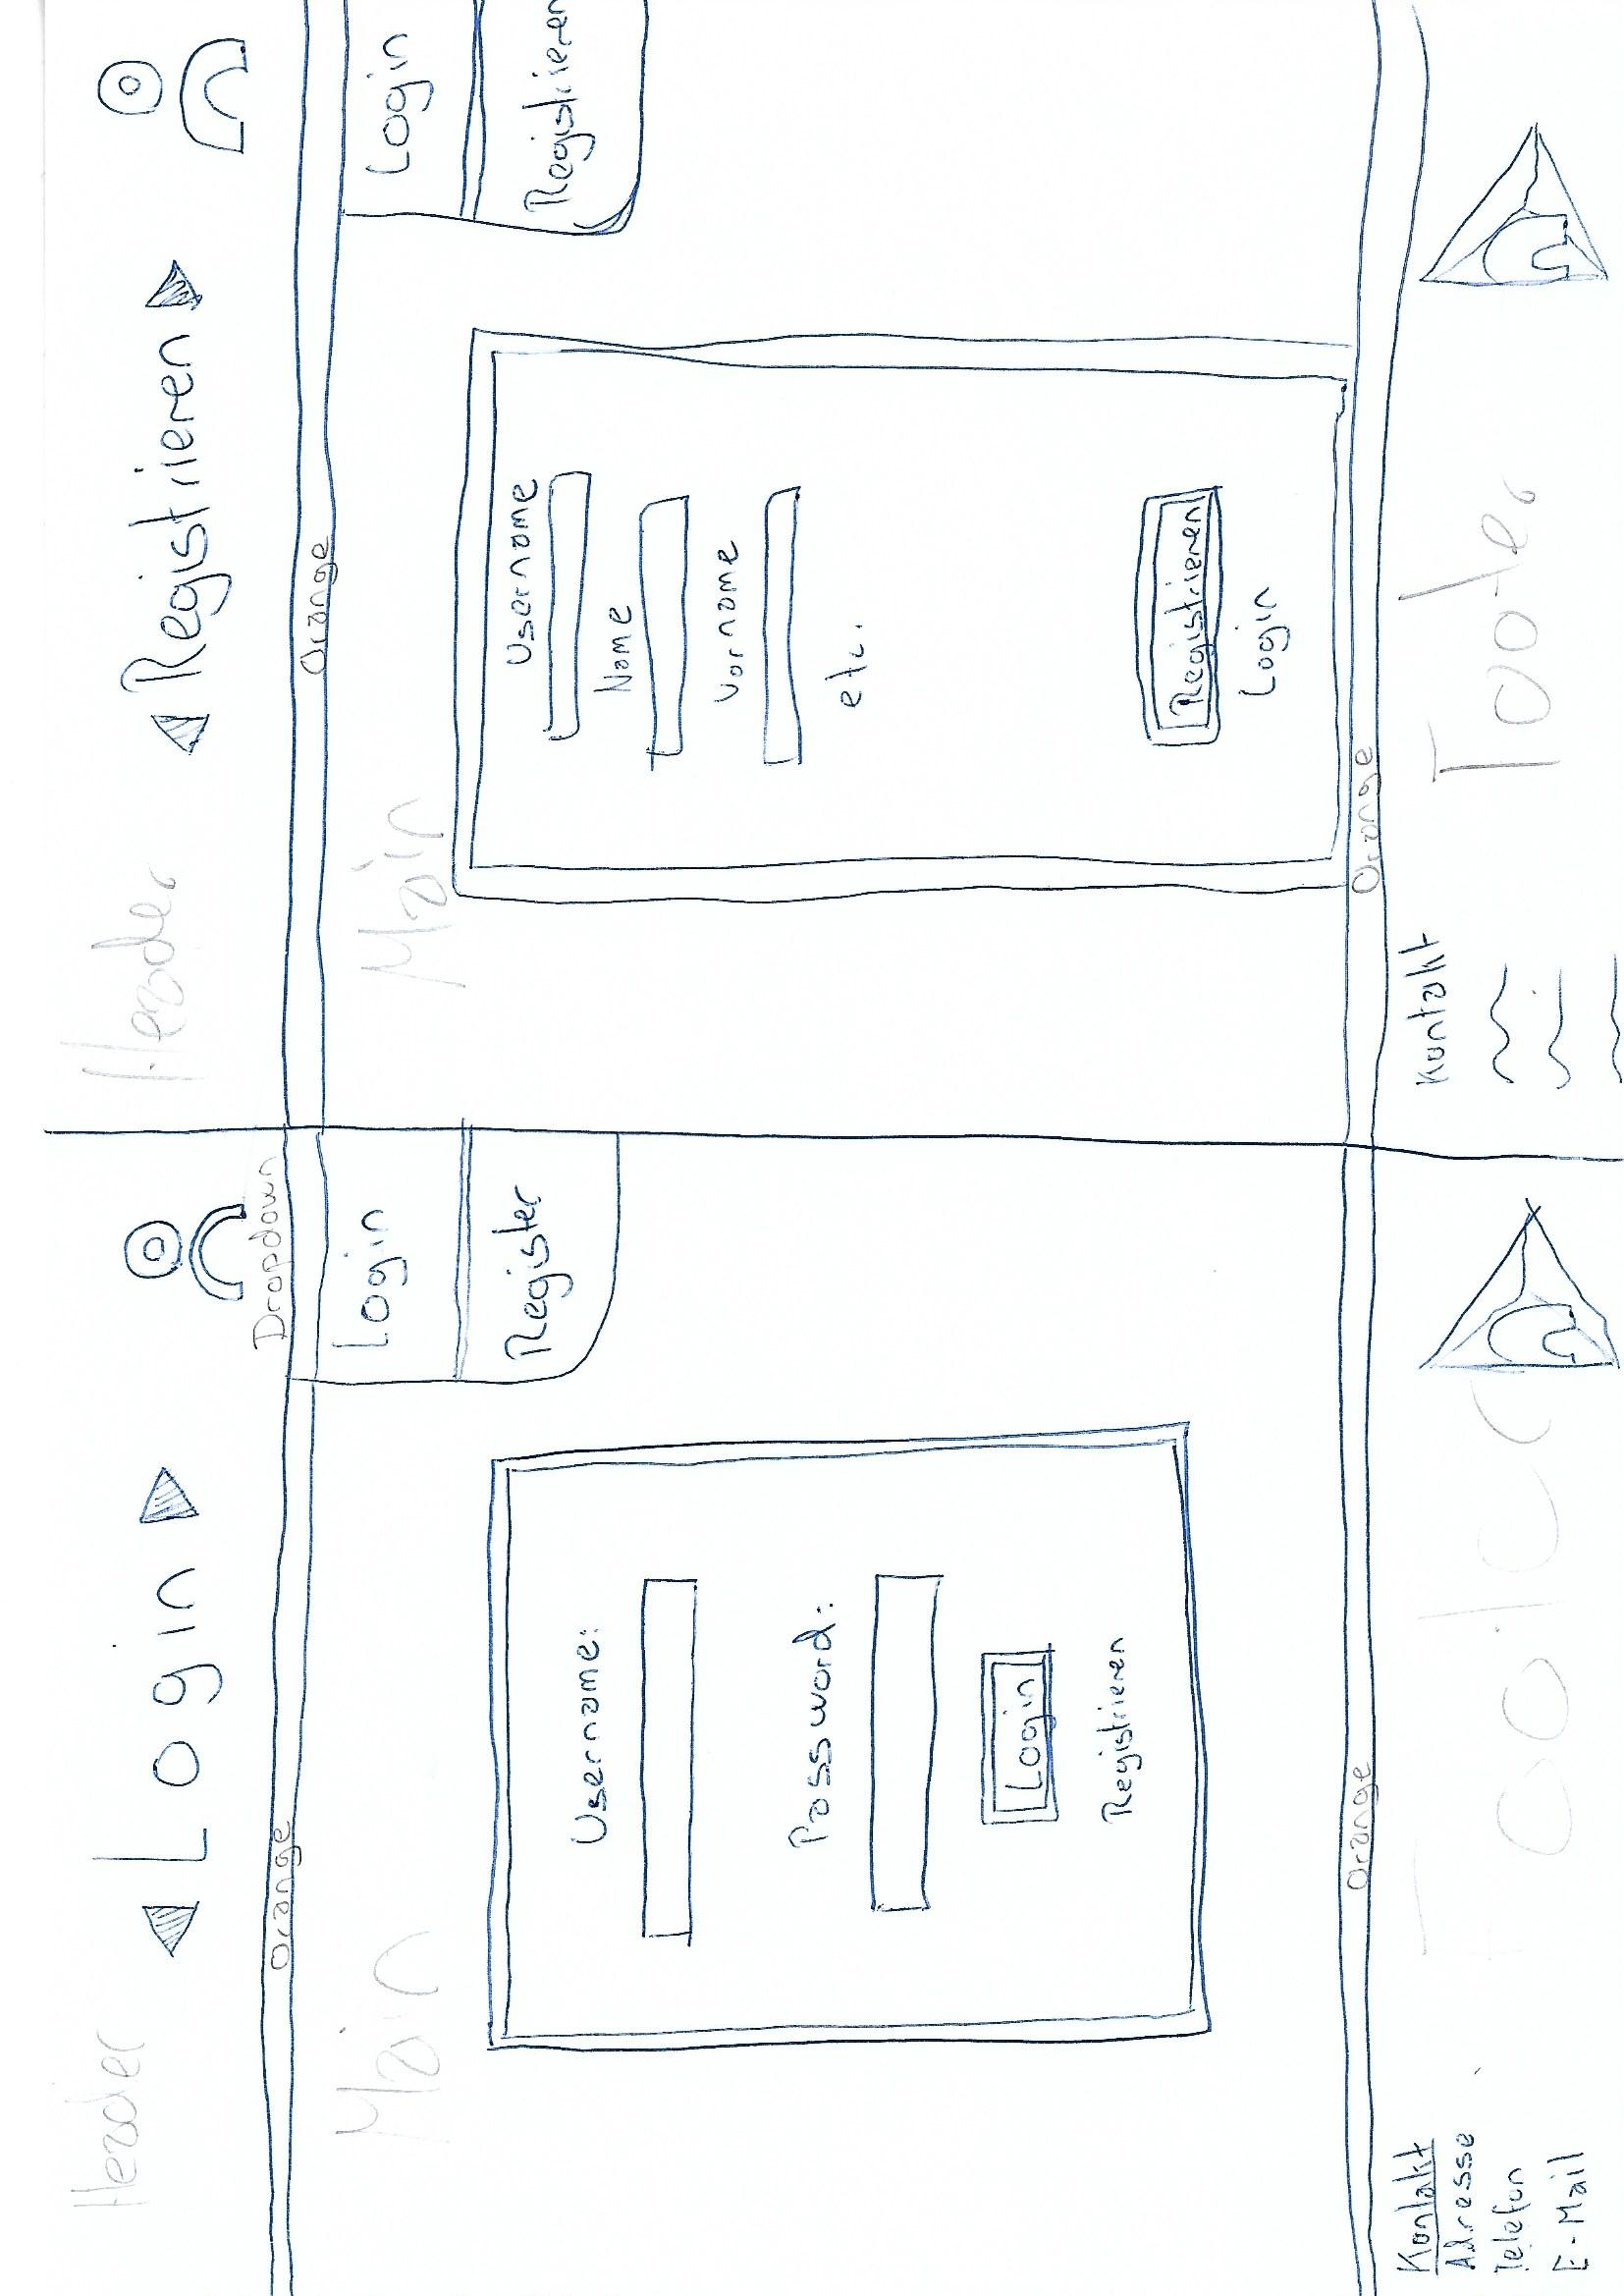 Header
Login
Dropdown
Orange
Main
Login
Register
Username:
Password:
Login
Registrieren
Orange
Kontakt
Adresse
Telefon
E-Mail
Footer
Header
Registrieren
Orange
Main
Login
Registrieren
Username
Name
Vorname
etc.
Registrieren
Login
Orange
Kontakt
Footer